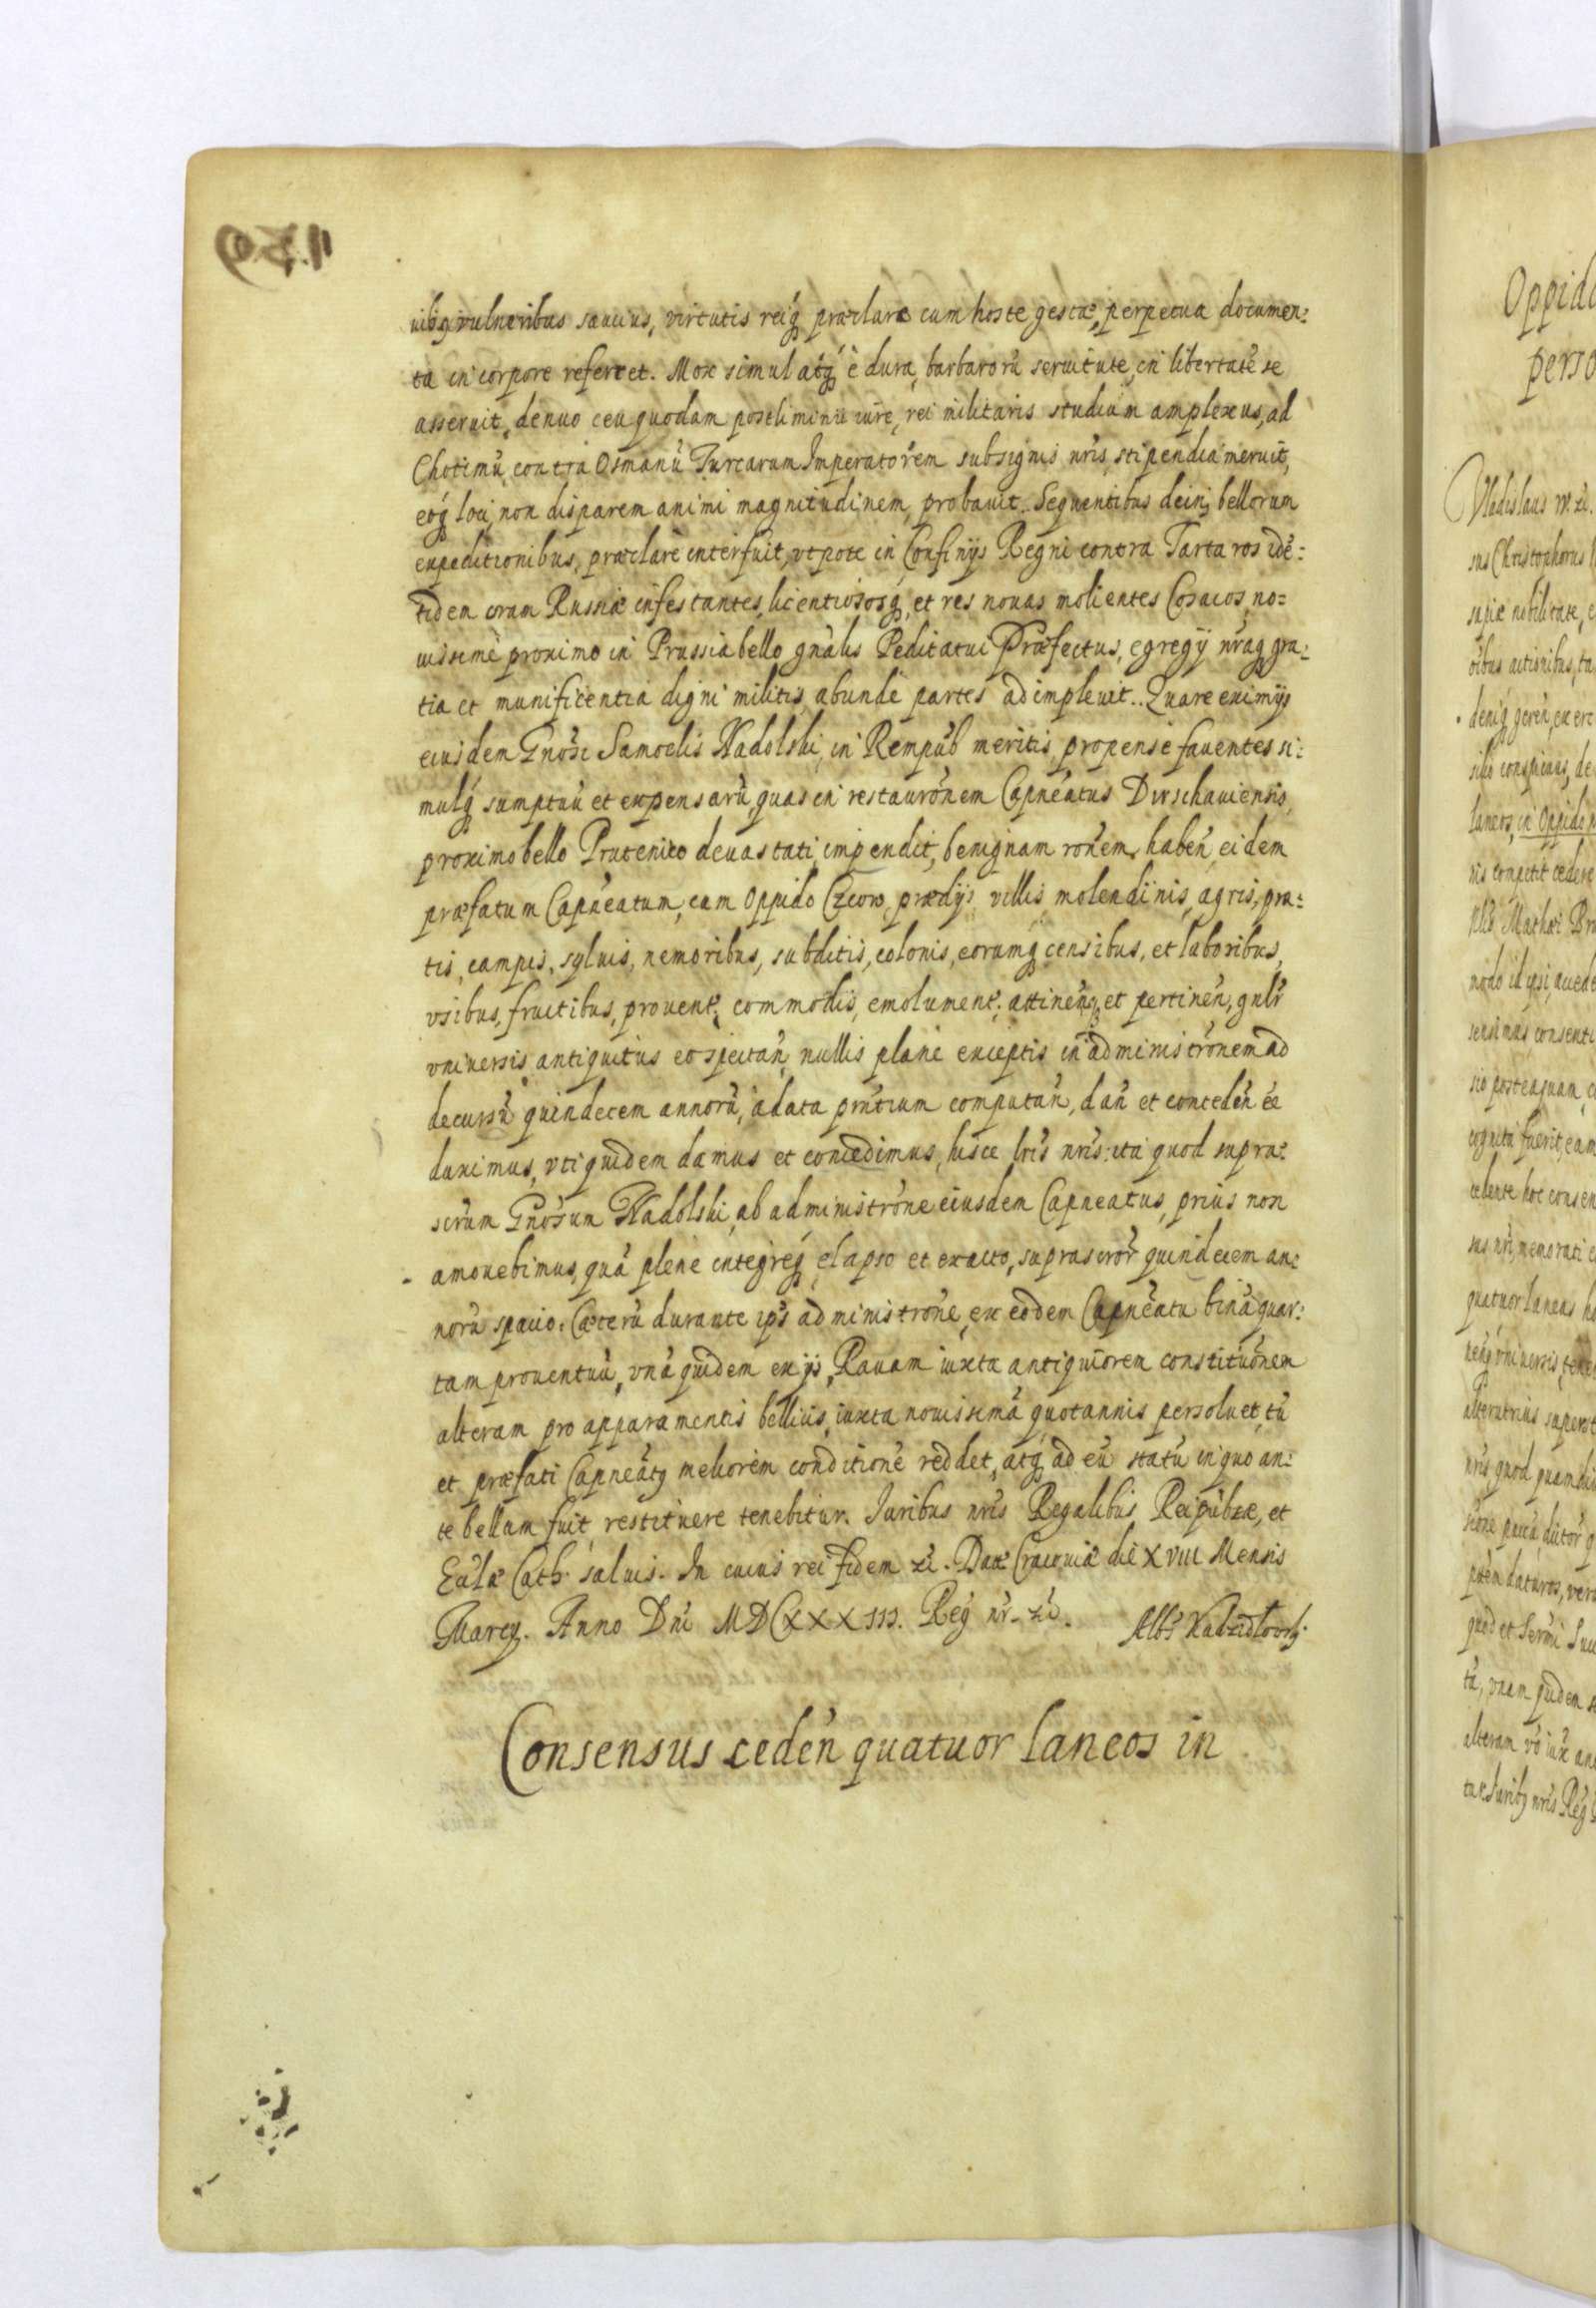 uibq vulneribus saucius, virtutis reiq præclare cum hoste gestæ, perpetua documen:
ta in corpore referret. Mox simul atq è dura, barbarorũ seruitute, in libertatẽ se
asseruit, denuo ceu quodam postliminii iure, rei militaris studium amplexus, ad
Chotimũ, contra Osmanũ Turcarum Imperatorem sub signis nrĩs, stipendia meruit,
eoq loci, non disparem animi magnitudinem, probauit. Sequentibus dein bellorum
expeditionibus, præclarè interfuit, vtpote in Confinijs Regni contra Tartaros idẽ:
tidem oram Russiæ infestantes, licentiososq, et res nouas molientes Cosacos, no:
uissimè proximo in Prussia bello gnãlis Peditatui Præfectus, egregij nraq gra:
tia et munificentia digni militis, abundè partes adimpleuit. Quare eximijs
eiusdem Gnõsi Samoelis Nadolski, in Rempub meritis, propense fauentes si:
mulq sumptuũ et expensarũ, quas in restaurõnem Capneatus Dirschauiensis,
proximo bello Prutenico deuastati, impendit, benignam rõnem, habeñ, eidem
præfatum Capneatum, cum Oppido Czcow, prædijs villis, molendinis, agris, pra:
tis, campis, syluis, nemoribus, subditis, colonis, eorumq censibus, et laboribus,
vsibus, fructibus, prouent, commodis, emolument, attineñ, et pertineñ, gnlr
vniuersis antiquitus eo spectañ, nullis plane exceptis in administrõnem ad
decursũ quindecem annorũ, à data prñtium computañ, dañ et concedeñ eẽ
duximus, vti quidem damus et concedimus, hisce lrĩs nrĩs: ita quod supra:
scrum Gnõsum Nadolski, ab administrõne eiusdem Capneatus, prius non
amouebimus, quã plene integreq elapso et exacto, suprascror quindecem an:
norũ spacio. Cæterũ durante ips administrõne, ex eodem Capneatu binã quar:
tam prouentuũ, vnã quidem ex ijs, Rauam iuxta antiquiorem constitutiõnem
alteram pro apparamentis bellicis, iuxta nouissimã, quotannis persoluet, tũ
et præfati Capneatq meliorem conditionẽ reddet, atq ad eũ statũ in quo an:
te bellum fuit restituere tenebitur. Iuribus nrĩs Regalibus, Reipubcæ, et
Eccłæ Cath. saluis. In cuius rei fidem zc. Datt Cracouiæ die XVIII Mensis
Marcij. Anno Dni MDCXXXIII. Reg nr. zc. Albs Kadzidłowsky.
Consensus cedeñ quatuor laneos in
Oppido
perso
Vladislaus IV. zc.
sus Christophorus
sapiæ nobilitate,
oibus actionibus, ta
deniq gereñ, exerc
silio conspicuus, de
laneos, in Oppido
ris competit cedere
Mathæi Bra
modo id ipsi, accede
sensimus consenti
sio posteaquam
cognita fuerit, eam
cedente hoc consen
sus nri, memorati
quatuor laneas ho
neñq vniuersis, tene
alterutrius superst
nrĩs quod quamdiu